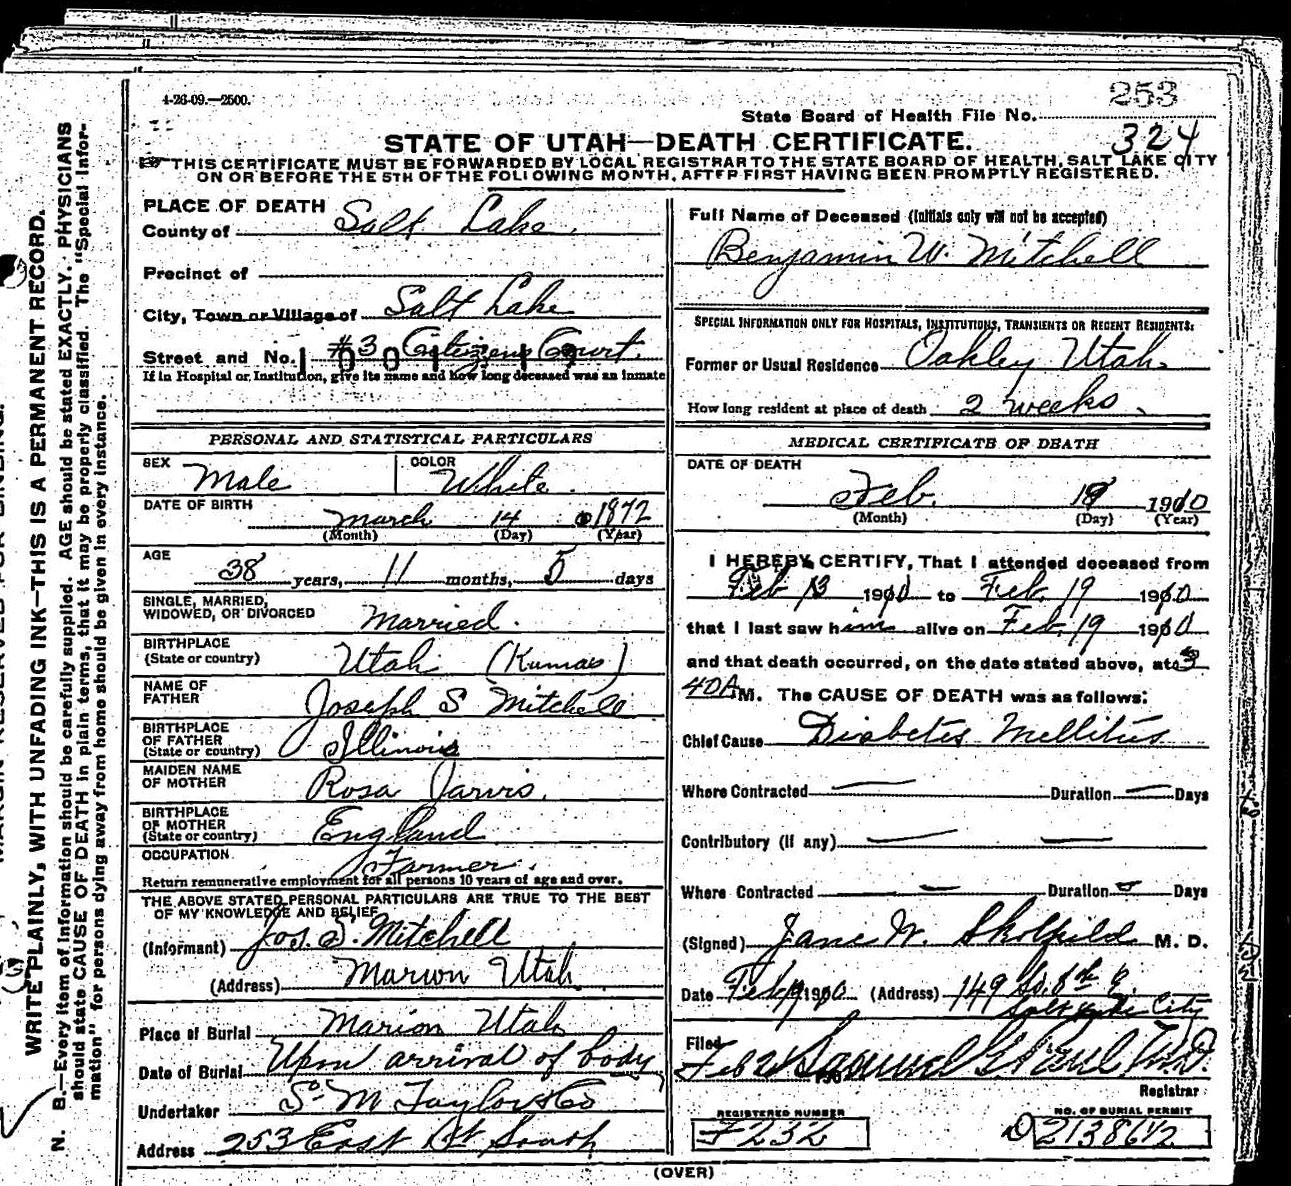 4-26-09.—2500.
253
State Board of Health File No.
324
STATE OF UTAH—DEATH CERTIFICATE.
THIS CERTIFICATE MUST BE FORWARDED BY LOCAL REGISTRAR TO THE STATE BOARD OF HEALTH, SALT LAKE CITY
ON OR BEFORE THE 5TH OF THE FOLLOWING MONTH, AFTER FIRST HAVING BEEN PROMPTLY REGISTERED.
WRITE PLAINLY, WITH UNFADING INK—THIS IS A PERMANENT RECORD.
N. B.—Every item of information should be carefully supplied. AGE should be stated EXACTLY. PHYSICIANS
should state CAUSE OF DEATH in plain terms, that it may be properly classified. The "Special Infor-
mation" for persons dying away from home should be given in every instance.
PLACE OF DEATH
County of Salt Lake.
Precinct of
City, Town or Village of Salt Lake
Street and No. #3 Citizens Court.
If in Hospital or Institution, give its name and how long deceased was an inmate
PERSONAL AND STATISTICAL PARTICULARS
SEX Male
COLOR White.
DATE OF BIRTH March 14 1872
(Month) (Day) (Year)
AGE 38 years, 11 months, 5 days
SINGLE, MARRIED,
WIDOWED, OR DIVORCED Married.
BIRTHPLACE
(State or country) Utah (Kamas)
NAME OF
FATHER Joseph S Mitchell
BIRTHPLACE
OF FATHER
(State or country) Illinois
MAIDEN NAME
OF MOTHER Rosa Jarvis.
BIRTHPLACE
OF MOTHER
(State or country) England
OCCUPATION Farmer.
Return remunerative employment for all persons 10 years of age and over.
THE ABOVE STATED PERSONAL PARTICULARS ARE TRUE TO THE BEST
OF MY KNOWLEDGE AND BELIEF
(Informant) Jos. S. Mitchell
(Address) Marion Utah
Place of Burial Marion Utah
Date of Burial Upon arrival of body
Undertaker S. M Taylor & Co
Address 253 East 1st South
Full Name of Deceased (Initials only will not be accepted)
Benjamin W. Mitchell
SPECIAL INFORMATION ONLY FOR HOSPITALS, INSTITUTIONS, TRANSIENTS OR RECENT RESIDENTS:
Former or Usual Residence Oakley Utah.
How long resident at place of death 2 weeks.
MEDICAL CERTIFICATE OF DEATH
DATE OF DEATH
Feb. 19 1910
(Month) (Day) (Year)
I HEREBY CERTIFY, That I attended deceased from
Feb 13 1910 to Feb. 19 1910
that I last saw him alive on Feb. 19 1910
and that death occurred, on the date stated above, at 3
40A M. The CAUSE OF DEATH was as follows:
Chief Cause Diabetes Mellitus
Where Contracted — Duration — Days
Contributory (if any) — —
Where Contracted — Duration — Days
(Signed) Jane W. Skolfield M. D.
Date Feb 19 1910 (Address) 149 So. 8th E.
Salt Lake City
Filed
Feb 21 Samuel G. Paul M.D.
Registrar
REGISTERED NUMBER
F232
NO. OF BURIAL PERMIT
D 2138642
(OVER)